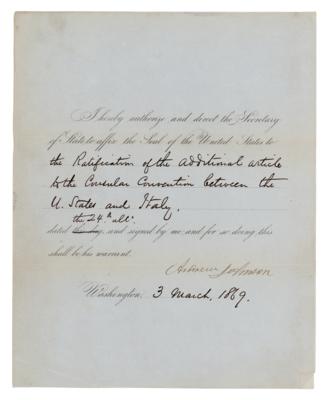 I hereby authorize and direct the Secretary
of State to affix the Seal of the United States to
the Ratification of the additional article
to the Consular Convention between the
U. States and Italy.
the 24th ulto.
dated this day, and signed by me: and for so doing this
shall be his warrant.
Andrew Johnson
Washington, 3 March, 1869.